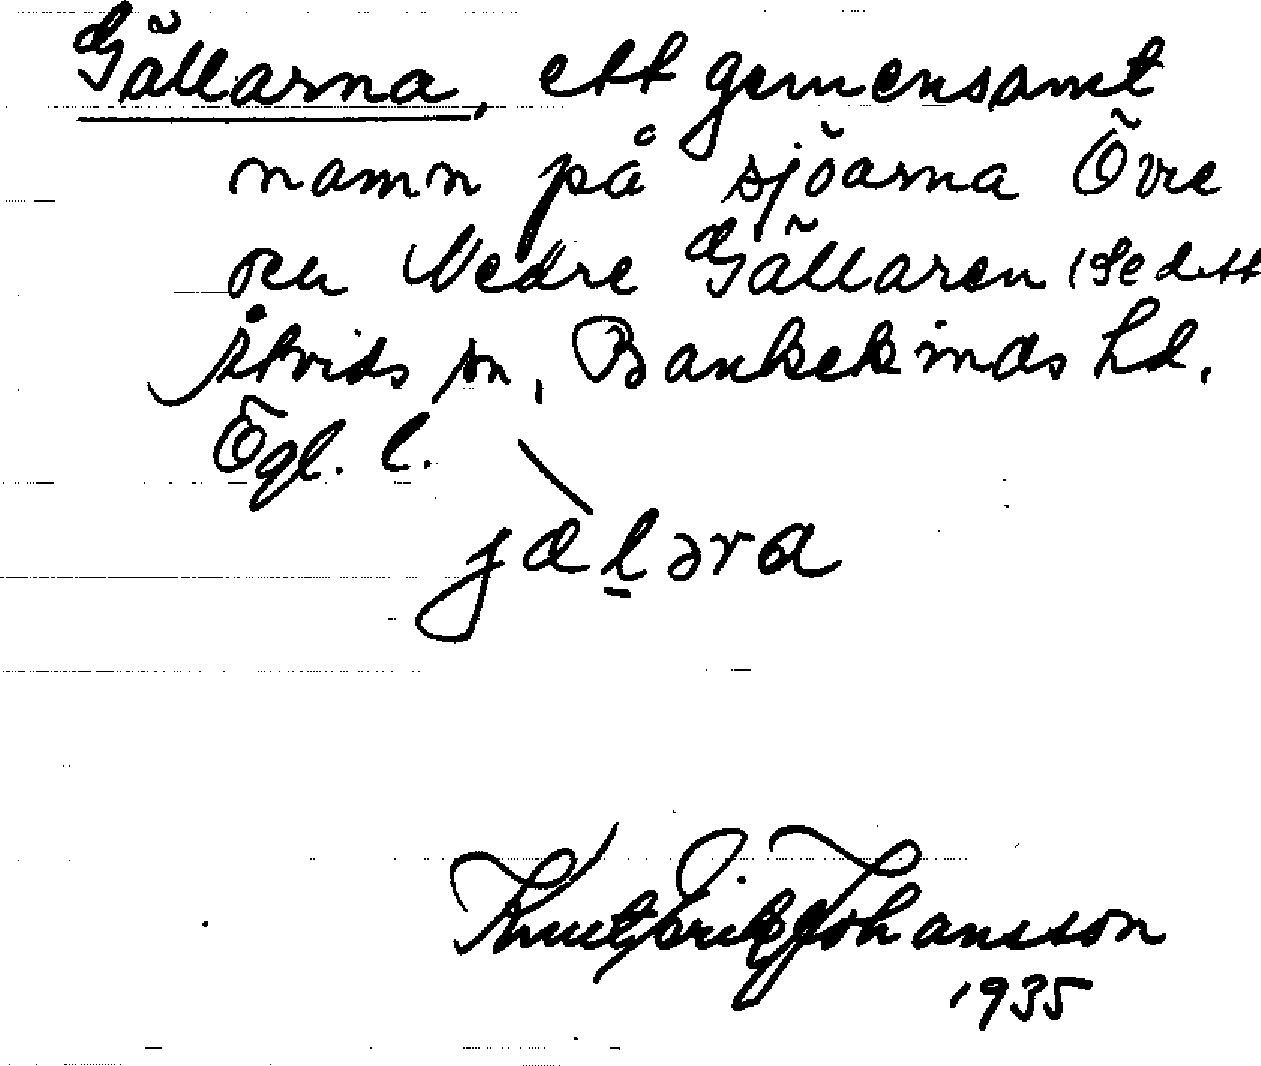 Gällarna, ett gemensamt
namn på sjöarna Övre
och Nedre Gällaren (Se d.tt
Åtvids sn, Bankekinds hd.
Ögl. l.
jælǝra
Knut Erik Johansson
1935